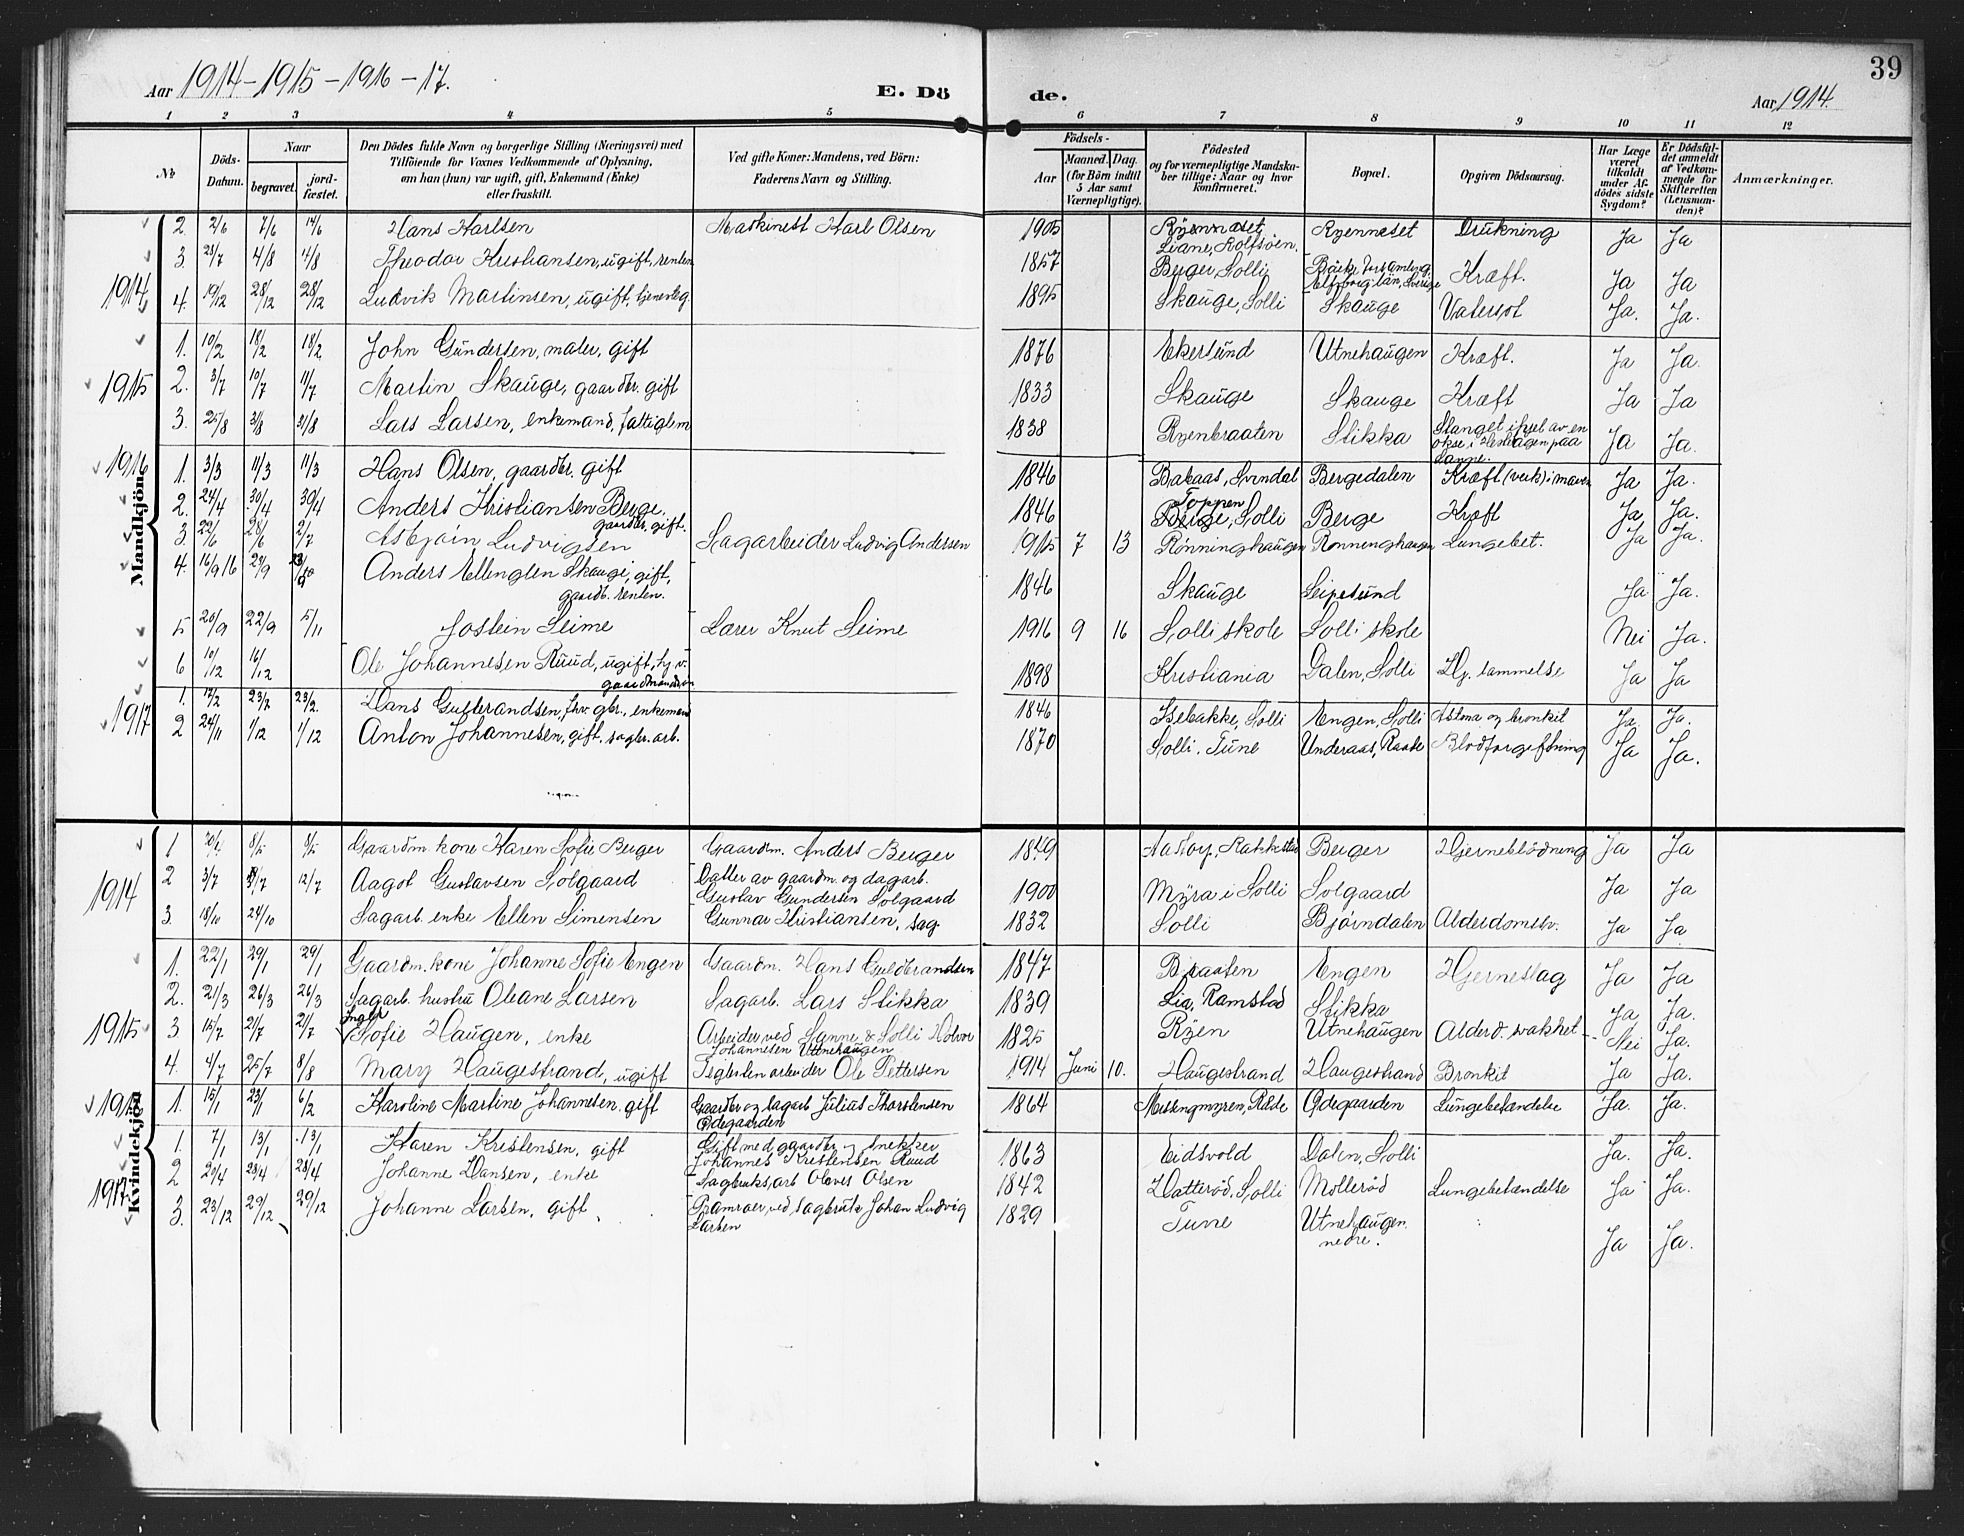 Aar 1914-1915-1916-17.
E. Dö
de.
Aar 1914.
39
1 2 3 4 5 6 7 8 9 10 11 12
№
Döds-Datum.
Naar
begravet.
jord-fæstet.
Den Dödes fulde Navn og borgerlige Stilling (Næringsvei) med
Tilföiende for Voxnes Vedkommende af Oplysning,
om han (hun) var ugift, gift, Enkemand (Enke)
eller fraskilt.
Ved gifte Koner: Mandens, ved Börn:
Faderens Navn og Stilling.
Födsels-
Aar
Maaned. Dag.
(for Börn indtil
5 Aar samt
Værnepligtige).
Födested
og for værnepligtige Mandska-
ber tillige: Naar og hvor
konfirmeret.
Bopæl.
Opgiven Dödsaarsag.
Har Læge
været
tilkaldt
under Af-
dödes sidste
Sygdom?
Er Dödsfal-
det anmeldt
af Vedkom-
mende for
Skifteretten
(Lensman-
den)?
Anmærkninger.
Mandkjön.
1914
2. 2/6 7/6 14/6 Hans Karlsen Maskinist Karl Olsen 1905 Ryenneset Ryenneset Drukning Ja Ja
Liane, Rolfsöen.
3. 4/8 4/8 Theodor Kristiansen, ugift, 1857 Berger, Solli Kræft. Ja Ja
4. 19/12 28/12 28/12 Ludvik Martinsen, ugift, 1895 Skauge, Solli Skauge Vatersot Ja. Ja.
1915
1. 10/2 18/2 18/2 John Gundersen, maler, gift 1876 Ekersund Utnehaugen Kræft. Ja Ja.
2. 3/7 10/7 11/7 Martin Skauge, gaardbr. gift 1833 Skauge Skauge Kræft Ja Ja
3. 25/8 31/8 31/8 Lars Larsen, enkemand, fattiglem 1838 Ryenbraaten Stikka Stanget ihjel av en
okse i paa
Sanne. Ja Ja.
1916
1. 3/3 11/3 11/3 Hans Olsen, gaardbr. gift 1846 Bakaas, Svindal Bergedalen Kræft i maven Ja Ja.
2. 24/4 30/4 30/4 Anders Kristiansen Berge. 1846 Toppen
Berge, Solli Berge Kræft Ja Ja.
gaardbr. gift.
3. 22/6 28/6 2/7 Asbjørn Ludvigsen Sagarbeider Ludvig Andersen 1915 7 13 Rønninghaugen Rønninghaugen Lungebet. Ja Ja.
4. 16/9 16 24/9 Anders Ellengsen Skauge, gift, 1846 Skauge Ja Ja.
gaardb. renten.
5 20/9 22/9 5/11 Jostein Seime Lærer Knut Seime 1916 9 16 Solli skole Solli skole Nei Ja.
6 10/12 16/12 Ole Johannesen Ruud, ugift, 1898 Kristiania Dalen, Solli Ja Ja
1917
1. 17/2 23/2 23/2. Hans Gulbrandsen, fhv. gbr., enkemand 1846 Isebakke, Solli Engen, Solli Astma og bronkit Ja Ja.
2 24/11 1/12 1/12 Anton Johannesen, gift. sagbr. arb. 1870 Solli, Tune Underaas, Raade Blodforgiftning Ja Ja.
Kvindekjön
1914
1 8/5 8/5 Gaardm. kone Karen Sofie Berger Gaardm. Anders Berger 1849 Rakkestad Berger Hjerneblödning Ja Ja
2 3/7 12/7 Aagot Gustavsen Solgaard Datter av gaardm. og dagarb.
Gustav Gundersen Solgaard 1900 Myra i Solli Solgaard Ja Ja
3. 18/10 24/10 Sagarb. enke Ellen Simensen Gunnar Kristiansen, sag. 1832 Solli Bjørndalen Alderdomssv. Ja Ja
1915
1. 22/1 29/1 29/1 Gaardm. kone Johanne Sofie Engen Gaardm. Hans Guldbrandsen 1847 Braaten Engen Hjerneslag Ja Ja
2. 21/3 26/3 26/3 Sagarb. hustru Oleane Larsen Sagarb. Lars Stikka 1839 Lia, Ramstad Stikka Ja Ja.
3 15/7 21/7 21/7 Sofie Haugen, enke Arbeider ved Sanne & Solli
Johannesen Uttnehaugen 1825 Ryen Utnehaugen Alderd. svakhet Nei Ja.
4. 4/7 25/7 8/8 Mary Haugestrand, ugift Teglstenarbeider Ole Pettersen 1914 Juni 10. Haugestrand Haugestrand Bronkit Ja Ja.
1. 15/1 23/1 6/2 Karoline Martine Johannesen, gift Gaardbr og sagarb Julius Thorstensen
Ødegaarden 1864 Ødegaarden Lungebetændelse Ja. Ja.
1917
1. 7/1 13/1 13/1 Karen Kristensen, gift Gift med gaardbr og snekker
Johannes Kristensen Ruud 1863 Eidsvold Dalen, Solli Ja. Ja.
2 20/4 28/4 28/4 Johanne Hansen, enke Sagbruksarb Olaves Olsen 1842 Hatteröd, Solli Mølleröd Lungebetændelse Ja Ja.
3. 23/12 29/12 29/12 Johanne Larsen, gift ved sagbruk Johan Ludvig
Larsen 1829 Tune Utnehaugen
nedre. Ja Ja.